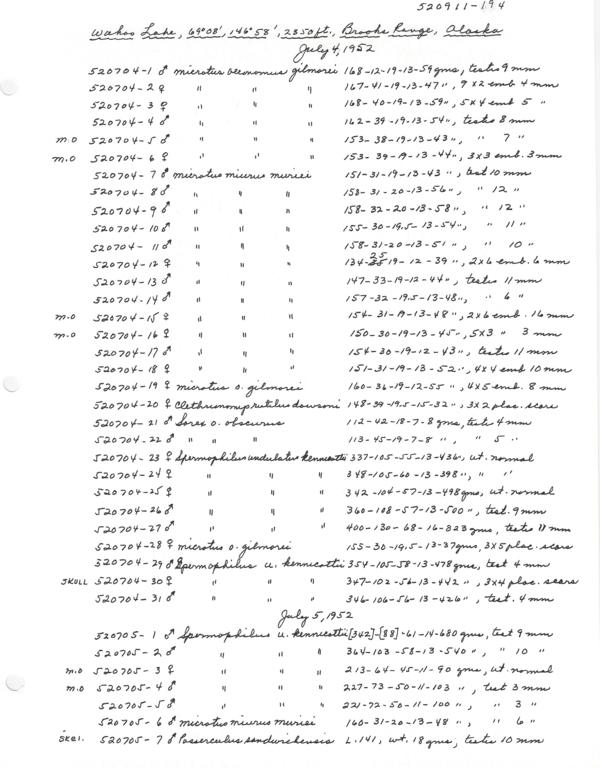 520911-194
Wahoo Lake, 69°08', 146°58', 2350 ft., Brooks Range, Alaska
July 4, 1952
520704-1 ♂ microtus oeconomus gilmorei 168-12-19-13-59 gms, testis 9 mm
520704-2 ♀ " " " 167-41-19-13-47 ", 9x2 emb 4 mm
520704-3 ♀ " " " 168-40-19-13-59 ", 5x4 emb 5 "
520704-4 ♂ " " " 162-39-19-13-54 ", testis 8 mm
m.o 520704-5 ♂ " " " 153-38-19-13-43 ", " 7 "
m.o 520704-6 ♀ " " " 153-39-19-13-44 ", 3x3 emb. 3 mm
520704-7 ♂ microtus miurus muriei 151-31-19-13-43 ", test 10 mm
520704-8 ♂ " " " 158-31-20-13-56 ", " 12 "
520704-9 ♂ " " " 158-32-20-13-58 ", " 12 "
520704-10 ♂ " " " 155-30-19.5-13-54 ", " 11 "
520704-11 ♂ " " " 158-31-20-13-51 ", " 10 "
520704-12 ♀ " " " 134-25-19-12-39 ", 2x6 emb. 6 mm
520704-13 ♂ " " " 147-33-19-12-44 ", testis 11 mm
520704-14 ♂ " " " 157-32-19.5-13-48 ", " 6 "
m.o 520704-15 ♀ " " " 154-31-19-13-48 ", 2x6 emb. 16 mm
m.o 520704-16 ♀ " " " 150-30-19-13-45 ", 5x3 " 3 mm
520704-17 ♂ " " " 154-30-19-12-43 ", testis 11 mm
520704-18 ♀ " " " 151-31-19-13-52 ", 4x4 emb 10 mm
520704-19 ♀ microtus o. gilmorei 160-36-19-12-55 ", 4x5 emb. 8 mm
520704-20 ♀ Clethrionomys rutilus dawsoni 148-39-19.5-15-32 ", 3x2 plac. scars
520704-21 ♂ Sorex o. obscurus 112-42-18-7-8 gms, testis 4 mm
520704-22 ♂ " " " 113-45-19-7-8 ", " 5 "
520704-23 ♀ Spermophilus undulatus kennicottii 337-105-55-13-436 ", ut. normal
520704-24 ♀ " " " 348-105-60-13-398 ", " "
520704-25 ♀ " " " 342-104-57-13-498 gms, ut. normal
520704-26 ♂ " " " 360-108-57-13-500 ", test. 9 mm
520704-27 ♂ " " " 400-130-68-16-823 gms, testis 11 mm
520704-28 ♀ microtus o. gilmorei 155-30-19.5-13-37 gms, 3x5 plac. scars
520704-29 ♂ Spermophilus u. kennicottii 354-105-58-13-478 gms, test 4 mm
SKULL 520704-30 ♀ " " " 347-102-56-13-442 ", 3x4 plac. scars
520704-31 ♂ " " " 346-106-56-13-426 ", test. 4 mm
July 5, 1952
520705-1 ♂ Spermophilus u. kennicottii [342]-[88]-61-14-680 gms, test 9 mm
520705-2 ♂ " " " 364-103-58-13-540 ", " 10 "
m.o 520705-3 ♀ " " " 213-64-45-11-90 gms, ut. normal
m.o 520705-4 ♂ " " " 227-73-50-11-103 ", test 3 mm
520705-5 ♂ " " " 221-72-50-11-100 ", " 3 "
520705-6 ♂ microtus miurus muriei 160-31-20-13-48 ", " 6 "
Skel. 520705-7 ♂ Passerculus sandwichensis L. 141, wt. 18 gms, testis 10 mm